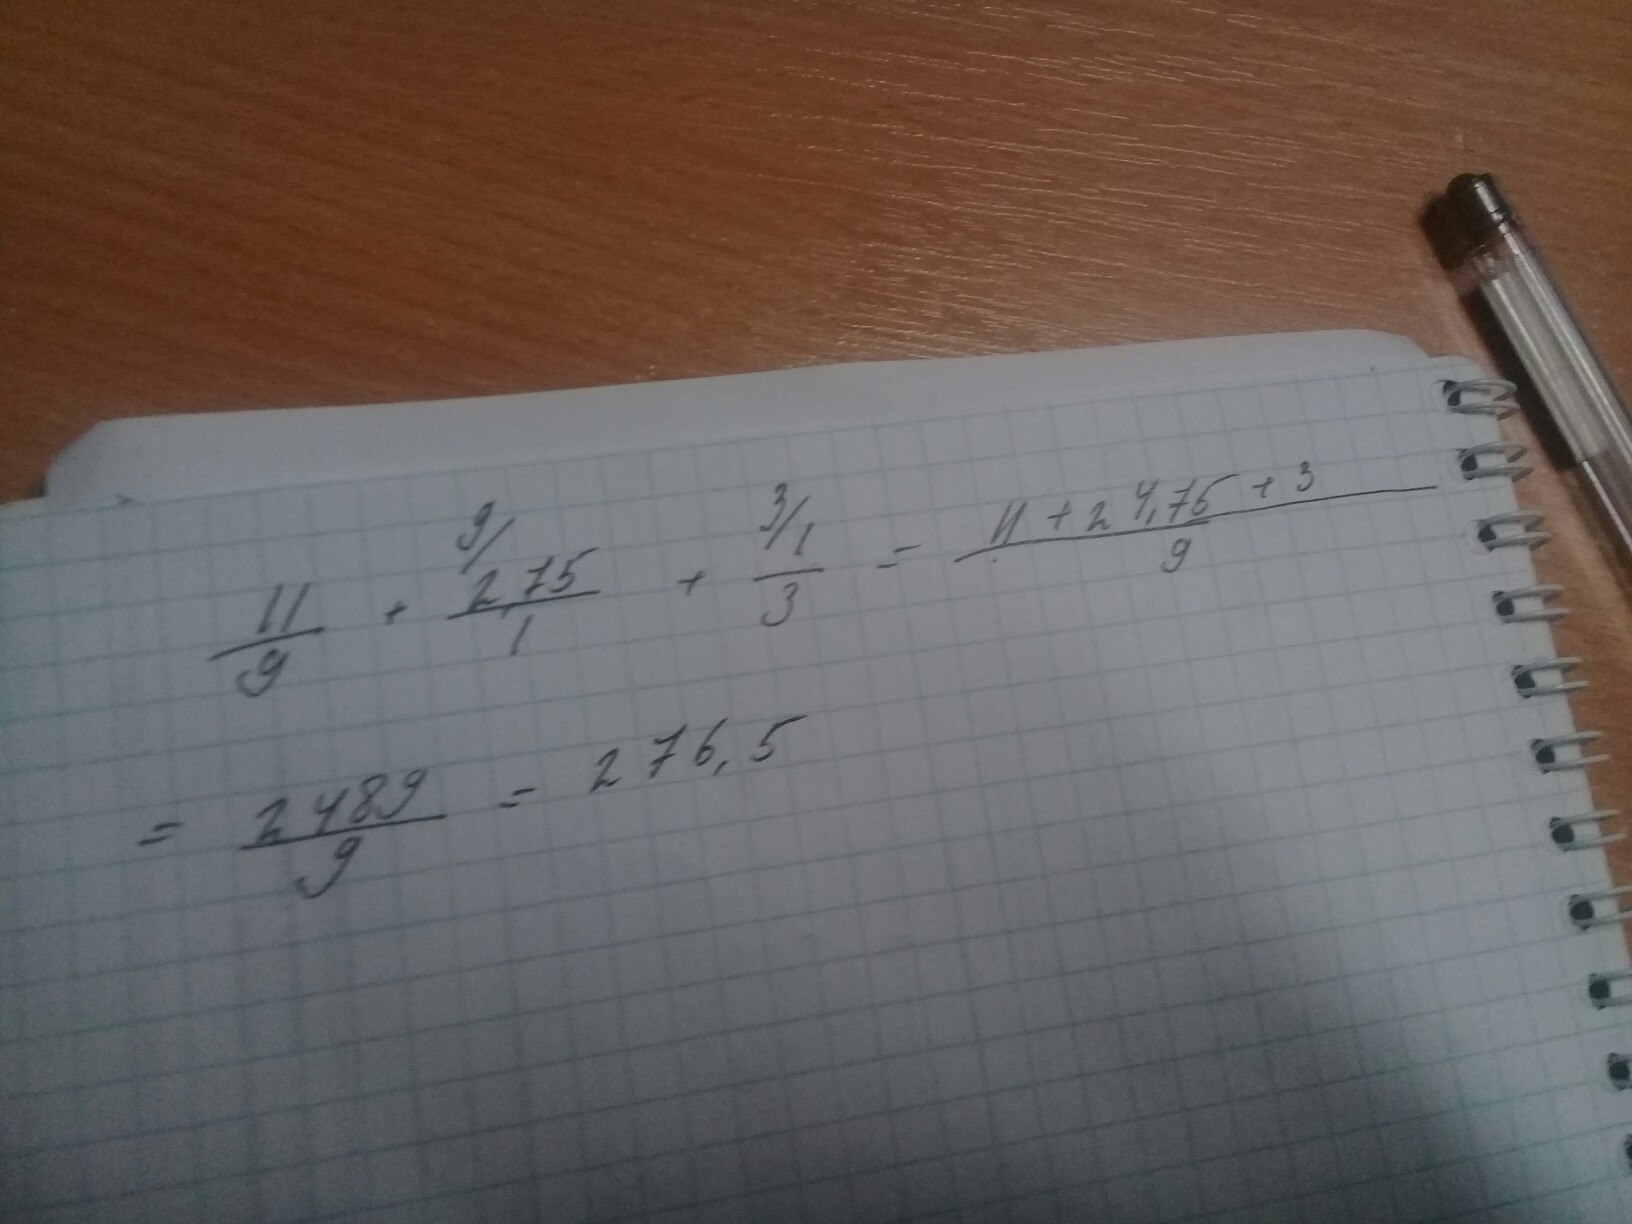 11/9 + 9/ 2,75/1 + 3/ 1/3 = 11 + 24,75 + 3/9
= 2489/9 = 276,5